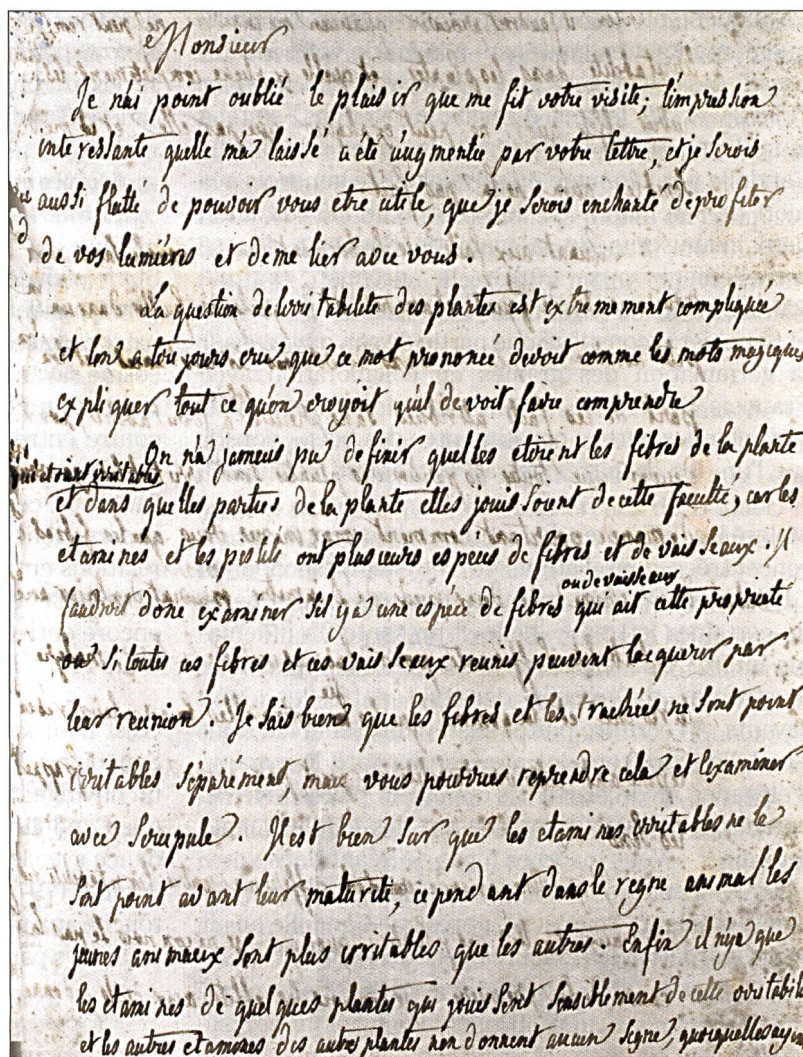 Monsieur
Je n'ai point oublié le plaisir que me fit votre visite; l'impression
interessante quelle m'a laissé a été augmentée par votre lettre, et je serois
aussi flatté de pouvoir vous etre utile, que je serois enchanté de profiter
de vos lumières et de me lier avec vous.
La question de lirritabilité des plantes est extremement compliquée
et lon a toujours cru que ce mot prononcé devoit comme les mots magiques
expliquer tout ce qu'on croyoit qu'il devoit faire comprendre
On n'a jamais pu definir quelles étoient les fibres de la plante
qui etoient irritables
et dans quelles parties de la plante elles jouissoient de cette faculté; car les
etamines et les pistils ont plusieurs espéces de fibres et de vaisseaux. Il
ou de vaisseaux
faudroit donc examiner sil y a une espéce de fibres qui ait cette propriété
ou si toutes ces fibres et ces vaisseaux reunis peuvent lacquerir par
leur reunion. Je sais bien que les fibres et les trachées ne sont point
irritables séparément, mais vous pourrues reprendre cela et lexaminer
avec scrupule. Il est bien sur que les etamines irritables ne le
sont point avant leur maturité, cependant dans le regne animal les
jeunes animaux sont plus irritables que les autres. Enfin il n'y a que
les etamines de quelques plantes qui jouissent sensiblement de cette irritabili
et les autres etamines des autres plantes n'en donnent aucun signe, quoiquelles ay